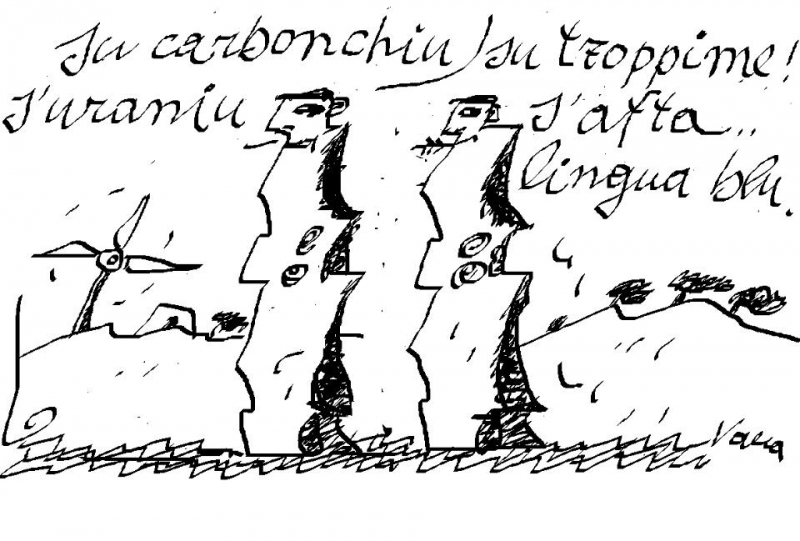 su carbonchiu su troppime!
s'uraniu
s'afta..
lingua blu.